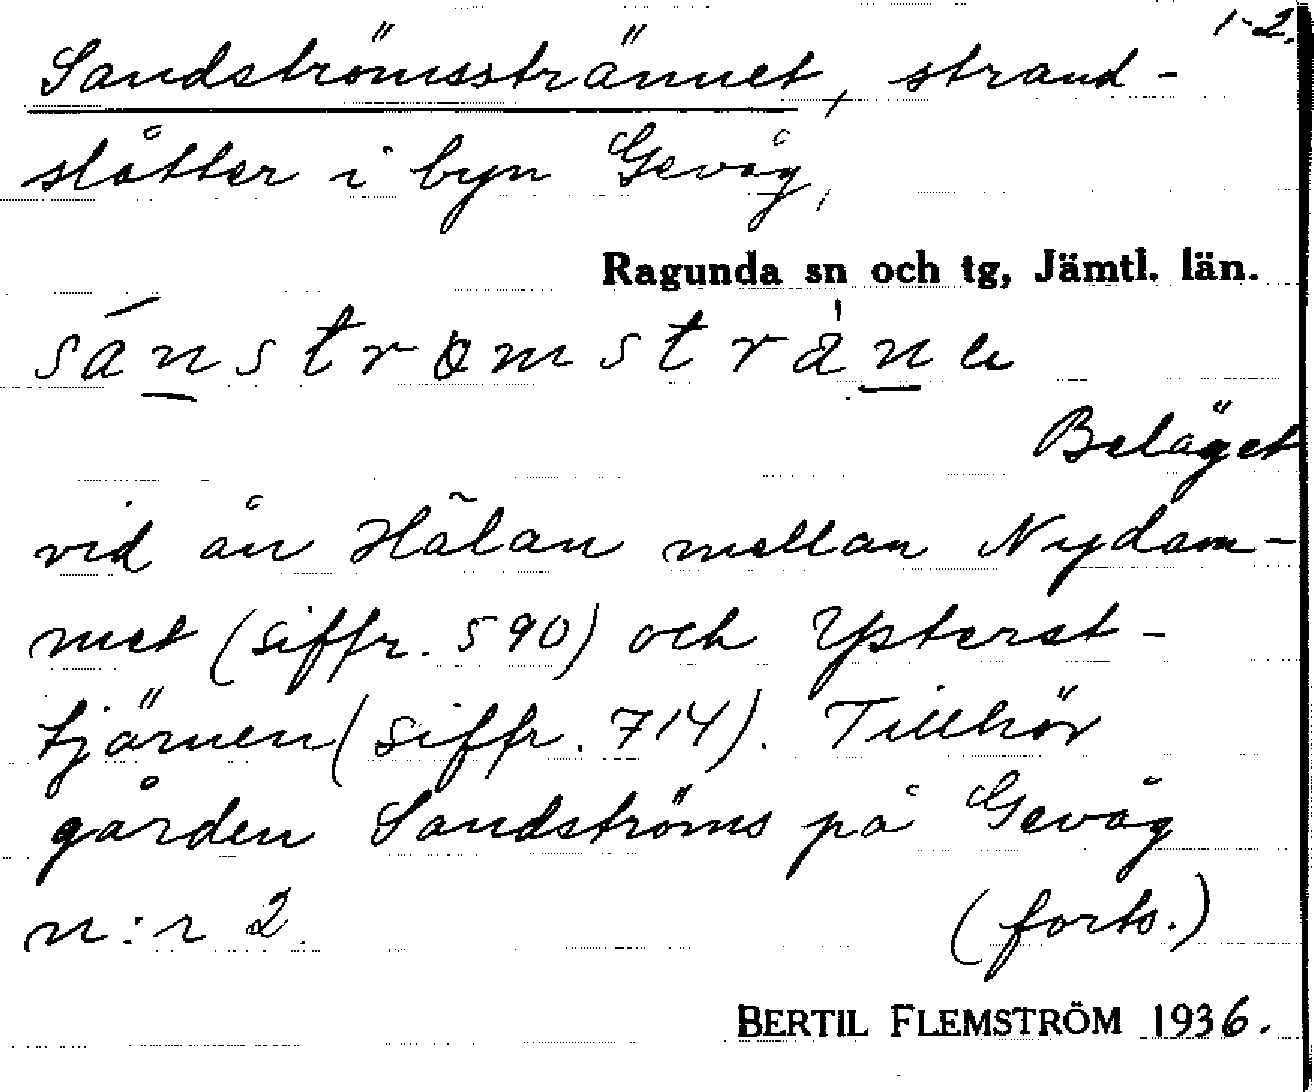 1-2.
Sandströmssträunet, strand-
slåtter i byn Gevåg,
Ragunda sn och tg, Jämtl. län.
Beläget
vid ån Hålan mellan Nydam-
met (siffr. 590) och Ypterst-
tjärnen (siffr. 714). Tillhör
gården Sandströms på Gevåg
n:r 2.
(forts.)
BERTIL FLEMSTRÖM 1936.